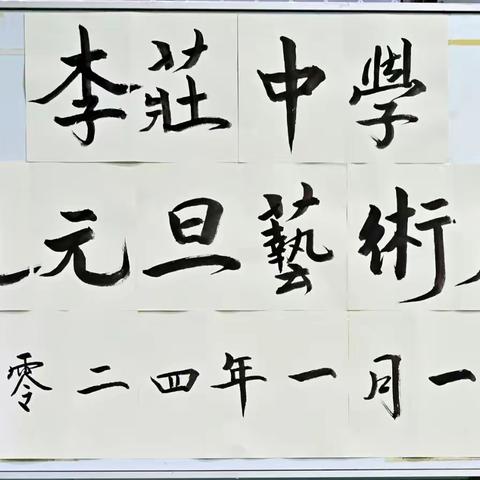 李莊中學
元旦藝術
零二四年一月一